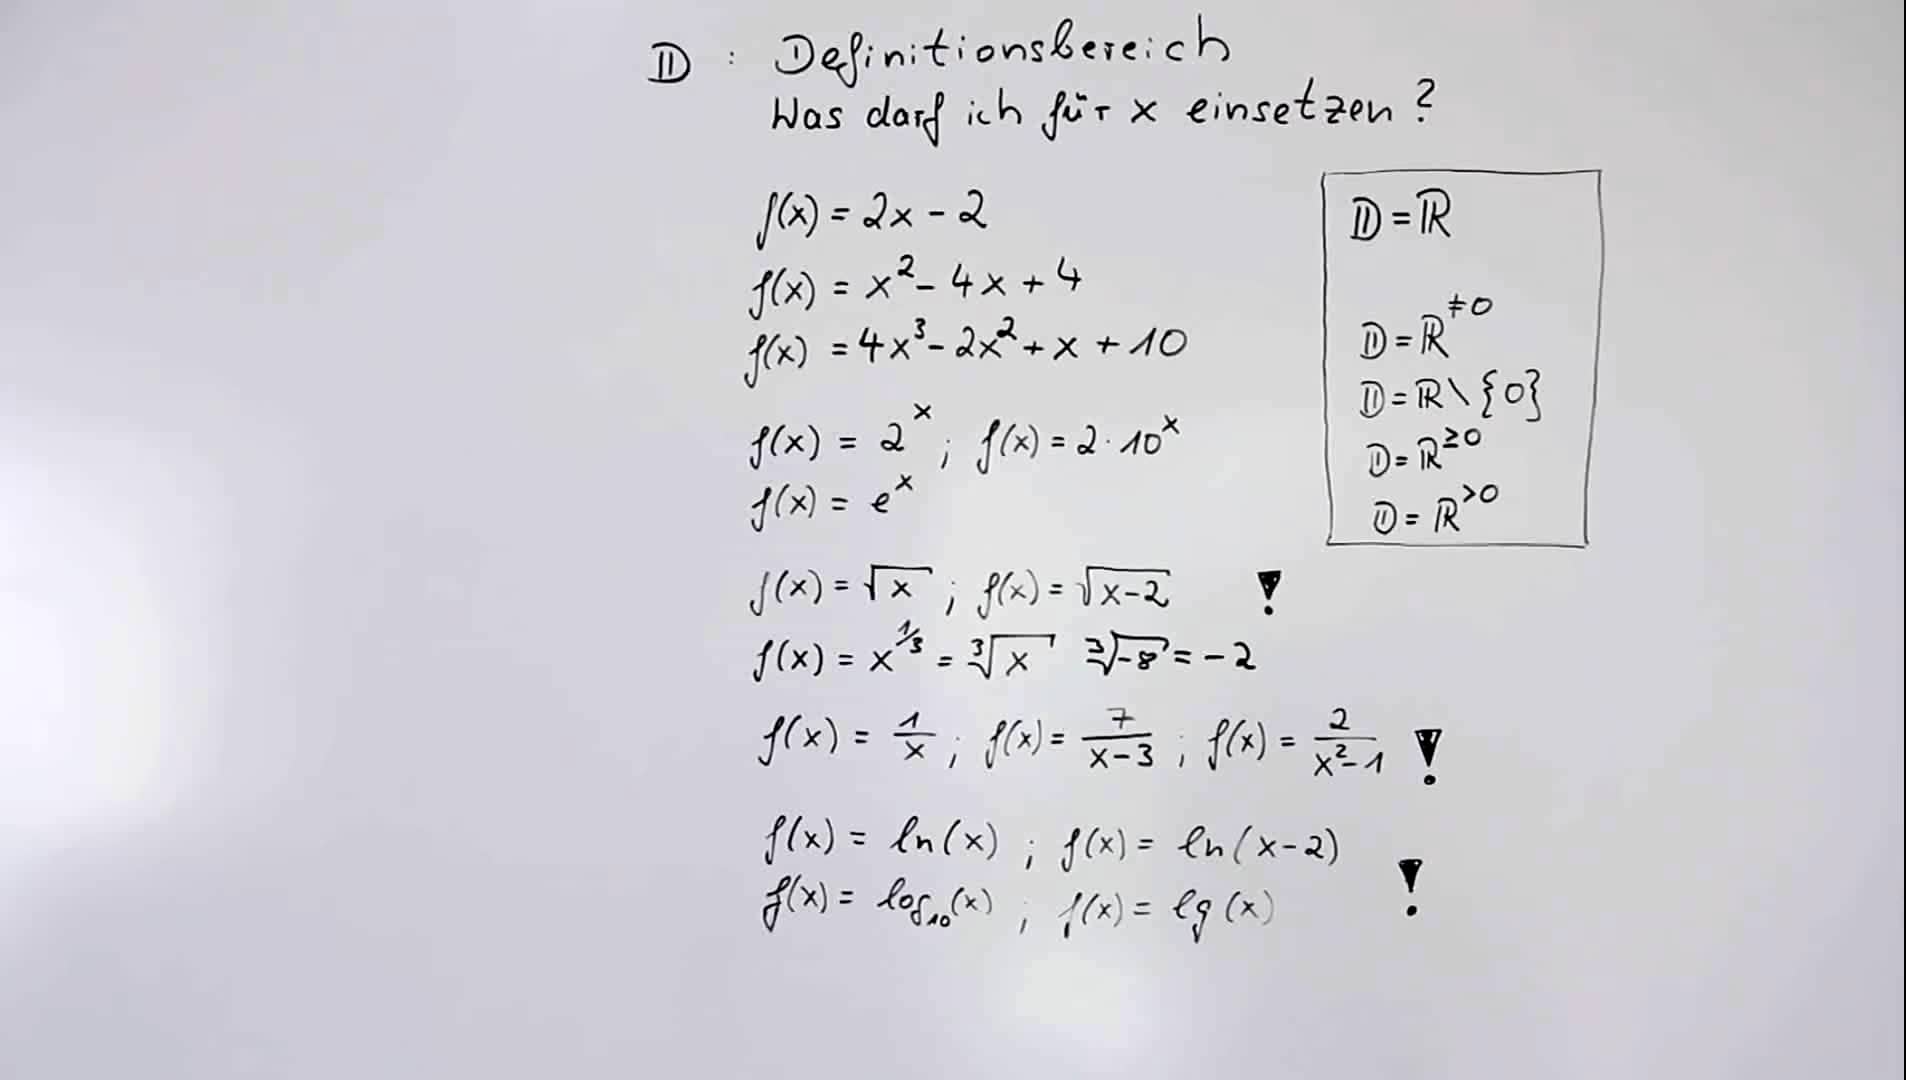 𝔻 : Definitionsbereich
Was darf ich für x einsetzen?
f(x) = 2x - 2
f(x) = x² - 4x + 4
f(x) = 4x³ - 2x² + x + 10
f(x) = 2^x ; f(x) = 2 · 10^x
f(x) = e^x
f(x) = √x ; f(x) = √(x-2) !
f(x) = x^(1/3) = ³√x ³√-8 = -2
f(x) = 1/x ; f(x) = 7/(x-3) ; f(x) = 2/(x²-1) !
f(x) = ln(x) ; f(x) = ln(x-2)
f(x) = log₁₀(x) ; f(x) = lg(x) !
𝔻 = ℝ
𝔻 = ℝ^≠0
𝔻 = ℝ \ {0}
𝔻 = ℝ^≥0
𝔻 = ℝ^>0